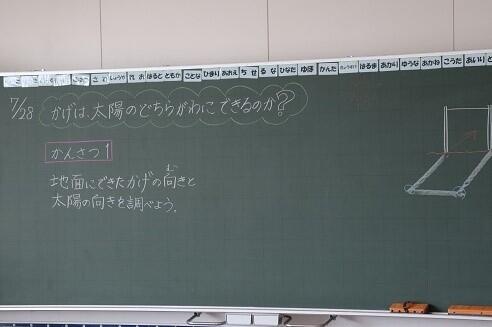 ことな ひまり あおえ ちせ るな ひなた ゆほ かんた はるま あかり ゆうな あかね こうだ あいい
7/28 かげは、太陽のどちらがわにできるのか?
かんさつ1
む
地面にできたかげの向きと
太陽の向きを調べよう。